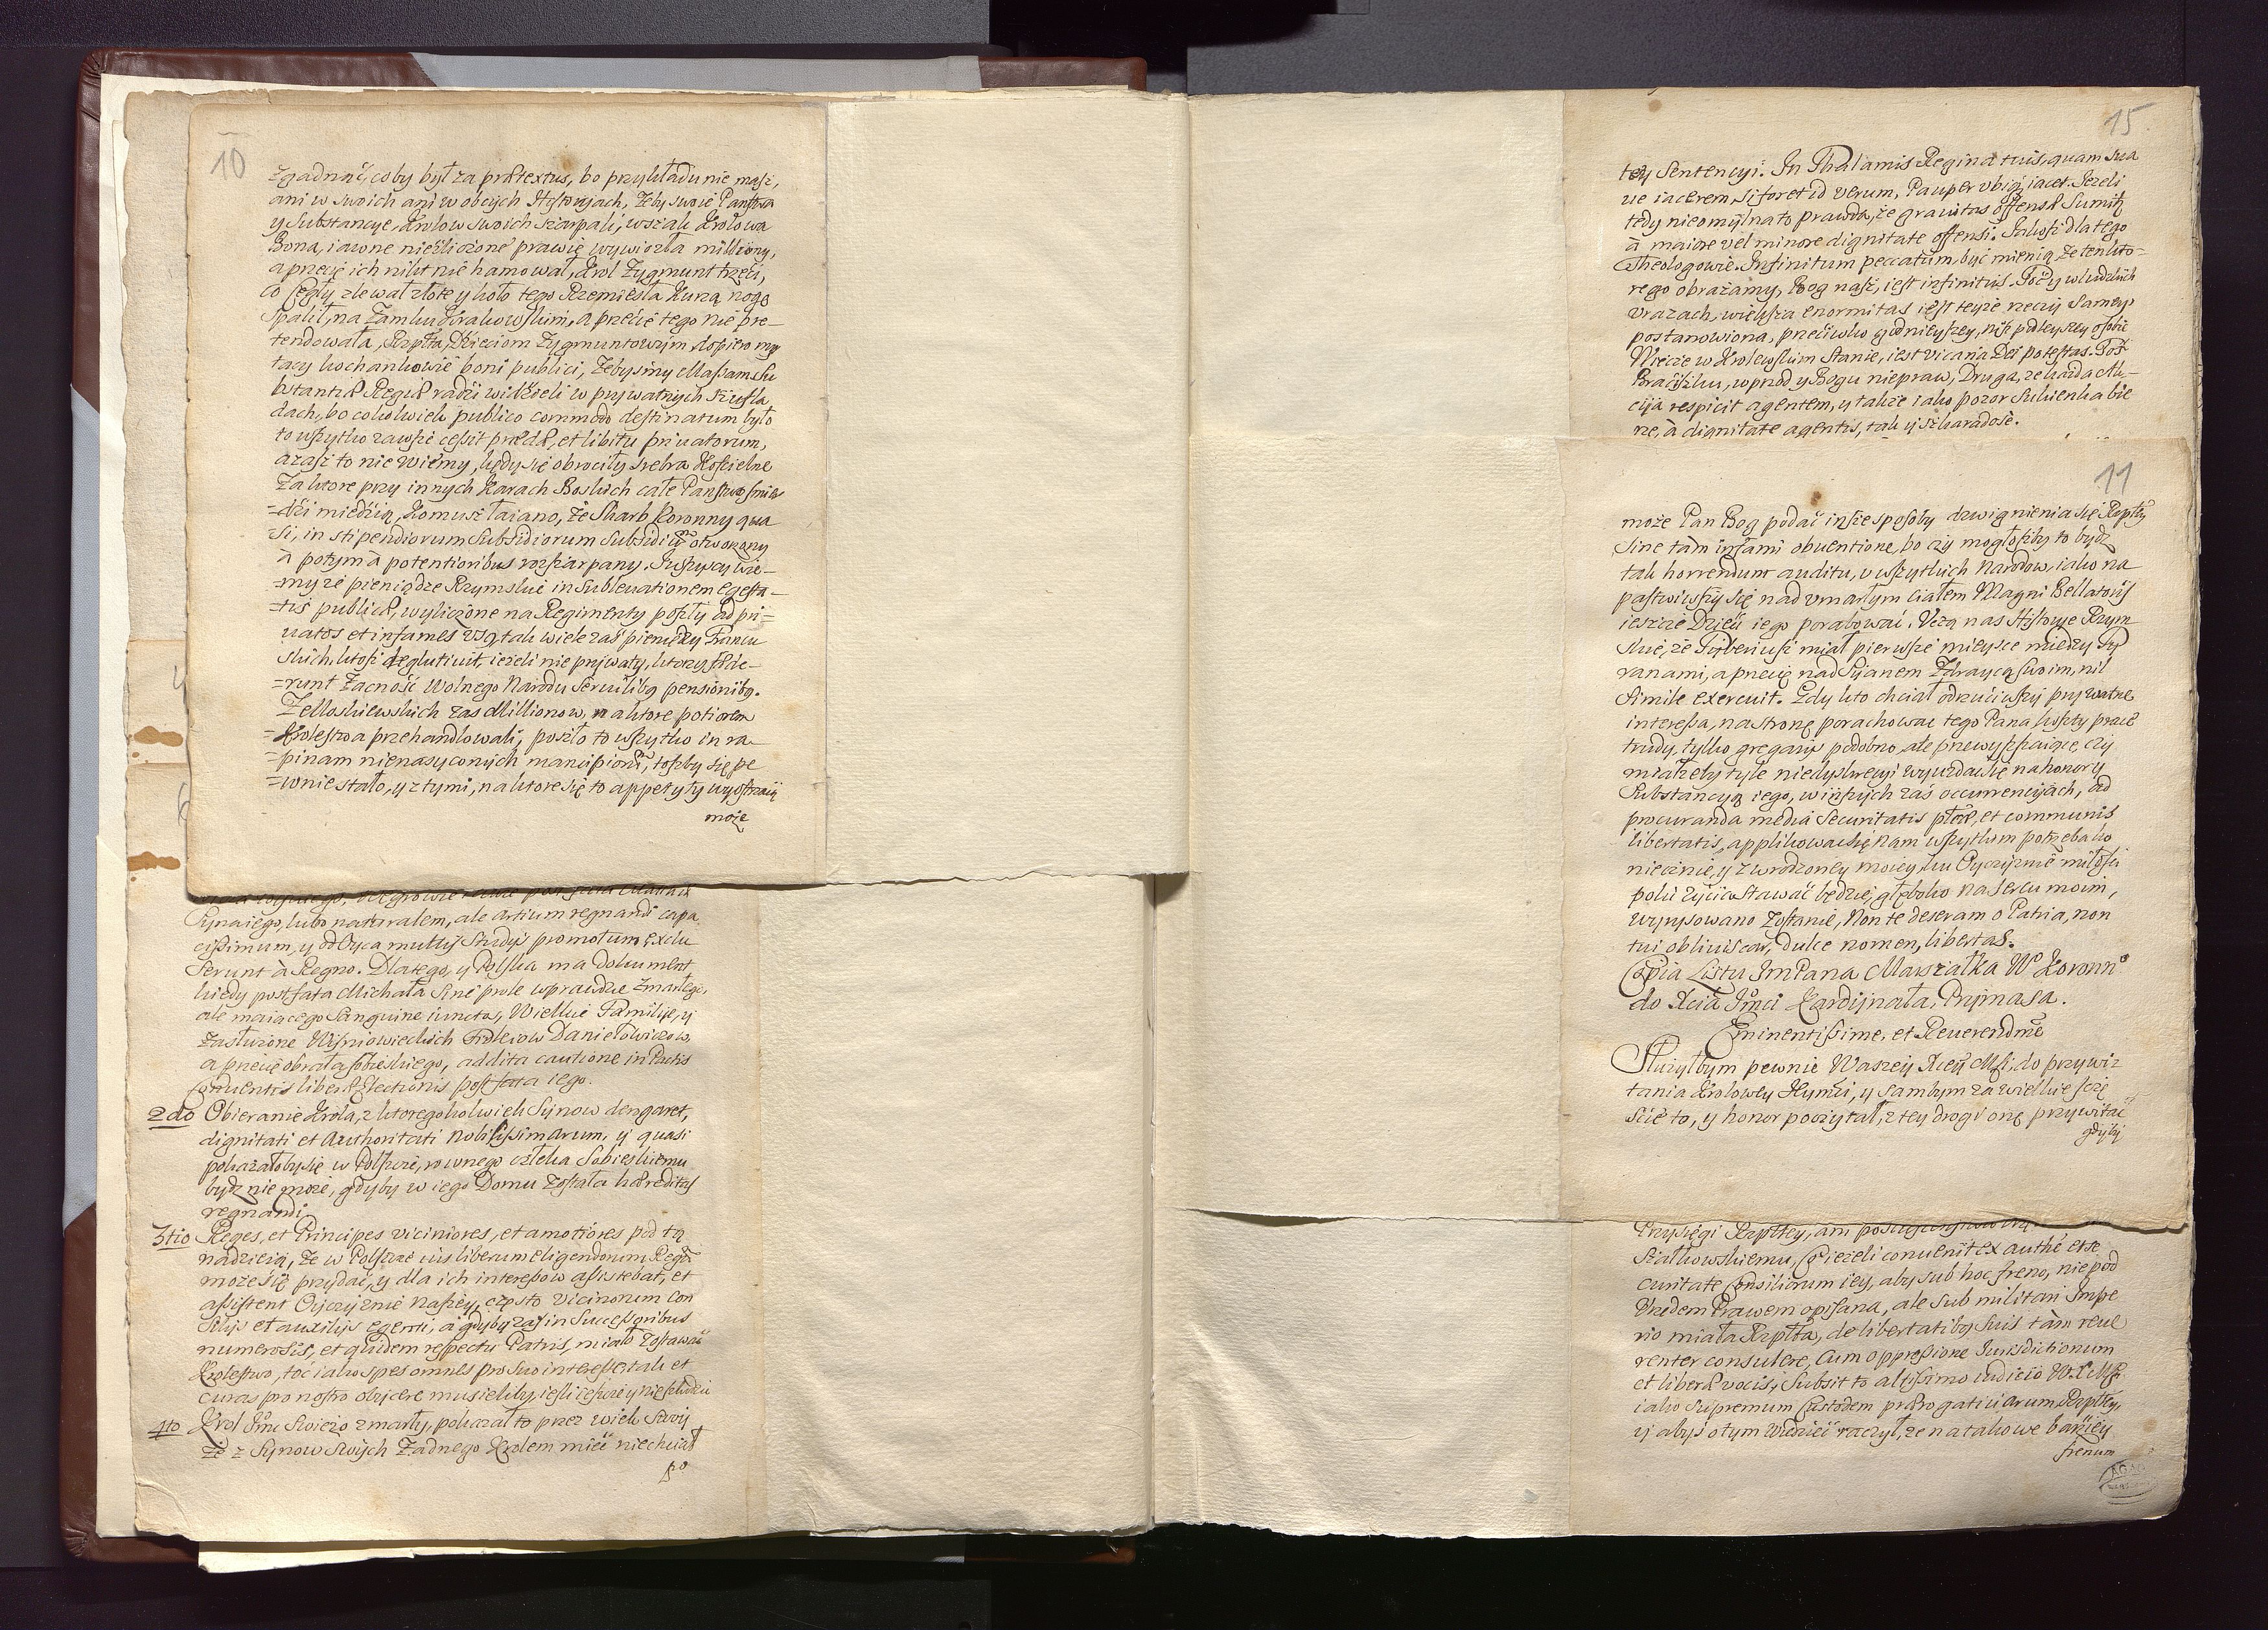 10
zgadnąć, coby był za prætextus, bo przykładu nie masz,
ani w swoich ani w obcych Hystoryach, żeby swoie Państwa
y Substancye, Krolow swoich szarpali, wszak Krolowa
Bona, iawne niezliczone prawie wywiozła milliony,
a przecię ich nikt nie hamował, Krol Zygmunt trzeci,
co cegły zlewał złote y koło tego Rzemiesła Kurzą nogę
spalił, na Zamku Krakowskim, a przecie tego nie pre-
tendowała, Rzplta, Dzieciom Zygmuntowym, dopiero my
tacy kochankowie boni publici, żebysmy Massam Su
bstantiæ Regiæ radzi widzieli w prywatnych szufla
dach, bo cokolwiek publico commodo destinatum było
to wszytko zawsze cessit prædæ, et libitu priuatorum,
azasz to nie wiemy, kędy się obrociły srebra Koscielne
Za ktore przy innych Karach Boskich całe Panstwo smier
=dzi miedzią, Komusz taiano, że Skarb Koronny qua
=si, in stipendiorum Subsidiorum Subsidium otworzony
à potym à potentioribus rozszarpany. Wszyscy wie-
=my że pieniądze Rzymskie in Subleuationem egesta-
=tis publicæ, wyliczone na Regimenty poszły ad pri=
uatos et infames usq tak wiele zaś pieniędzy Francu
skich, ktosz deglutiuit, ieżeli nie prywaty, ktorzy fæde-
=runt Zacność Wolnego Narodu Seruilibq pensionibq.
Zełłoskiewskich zas Millionow, na ktore potiorem
=Krolestwa przehandlowali, poszło to wszytko in ra-
=pinam nienasyconych mancipiorũ, toszby się pe
=wnie stało, y z tymi, na ktore się to appetyty wyostrzaią
może
Synaiego, lubo naturalem, ale artium regnandi capa
cissimum, y od Oyca multis Studijs promotum, exclu
serunt à Regno. Dlatego, y Polska ma dokument
kiedy post fata Michała sine prole wprawdzie zmarłego,
ale maiącego Sanguine iunctos, Wielkie Familie, y
zasłużone Wisniowieckich Krolewiow Daniełowiczow,
a przecię obrała Sobieskiego, addita cautione in Pactis
Conuentis liberæ Electionis post fata iego.
2do Obieranie Krola, z ktoregokolwiek Synow dengaret,
dignitati et Authoritati Nobilissimarum, y quasi
pokazałoby się w Polszcze, rownego człeka Sobieskiemu
bydz nie może, gdyby w iego Domu została hæreditas
regnandi.
3tio Reges, et Principes viciniores, et amotiores pod tą
nadzieią, że w Polszcze ius liberum eligendorum Regũ
może się przydać, y dla ich interessow assistebat, et
assistent Oyczyznie Naszey, często Vicinorum Con
silijs et auxilijs egenti, a gdyby zaś in Successoribus
numerosis, et quidem respectu Patris, miało zostawać
Krolestwo, toć iako spes omnes pro Suo interesse, tak et
curas pro nostro obijcere musieliby, iesli ieszcze y nie szkodzic
4to Krol Jmc Swieżo zmarły, pokazał to przez wiek Swoy
że z Synow Swych Żadnego Krolem mieć niechciał
po
15
tey Sentencyi. In Thalamis Regina tuis, quam sua
ue iacerem, si foret id verum, Pauper vbiq iacet. Ieżeli
tedy nieomylna to prawda, że grauitas offensæ Sumitq
à maiore vel minore dignitate offensi. Jakosz dla tego
Theologowie, Infinitum peccatum, być mienią, że ten kto-
rego obrażamy, Bog nasz, iest infinitus. Toć y w ludzkich
vrazach, większa enormitas iest teyże rzeczy Samey,
postanowiona, przeciwko godnieyszey, niż podleyszey osobie
Wiecie w Krolewskim Stanie, iest vicaria Dei potestas. Tos
Bracisku, wprzod y Bogu niepraw, Druga, ze kazda Ak-
cija respicit agentem, y także iako pozor Sukienka bie
rze, à dignitate agentis, tak y szkaradose.
11
może Pan Bog podać insze sposoby dzwignienia się Rzplty
Sine tam infami obuentione, bo czy mogłoszby to bydz
tak horrendum auditu, v wszytkich Narodow, iako na
pastwiwszy się nad vmarłym ciałem Magni Bellatoris
ieszcze Dzieci iego porabować. Vczą nas Hystorye Rzym
skie, że Tyberiusz miał pierwsze mieysce między Ty
ranami, a przecię nad Syianem Zdraycą Swoim, nil
Simile exercuit. Zdy kto chciał odrzuciwszy prywatne
interessa, na stronę porachować tego Pana koszty prace
trudy, tylko gregarijs podobno, ale przewyzszaiące, czy
miałżeby tyle niedyskrecyi wyuzdać się na honory
Substancyą iego, w inszych zaś occurrencyach, ad
procuranda media Securitatis płoræ, et communis
libertatis, applikować się nam wszytkim potrzeba ko
niecznie, y z wrodzoney moiey ku Oyczyznie miłości
poki życia stawać będzie, głęboko na sercu moim,
wyrysowano zostanie, Non te deseram o Patria, non
tui obliuiscar, dulce nomen, libertas.
Copia Listu JmPana Marszałka Wo Koronno
do Xcia Jmci Kardynała, Prymasa.
Eminentissime, et Reuerendme
Służyłbym pewnie Waszey Xcey Msci, do przywi-
tania Krolowey Hymci, y sambym za wielkie szczę
ście to, y honor poczytał, z tey drogi onę przywitać
gdyby
Przysięgi Rzpltey, ani
Szałkowskiemu, Co ieżeli conuenit ex authe et se
curitate Consiliorum iey, aby sub hoc freno, nie pod
Vrzedem Prawem opisana, ale sub militari Impe
rio miała Rzplta, de libertatibq Suis tam reue
renter consulere, Cum oppressione Jurisdictionum
et liberæ vocis, Subsit to altissimo iudicio W.X.Msci
iako Supremum Custodem prærogatiuarum Rzpltey,
y abyś otym widzieć raczył, że na takowe barziey
frenum